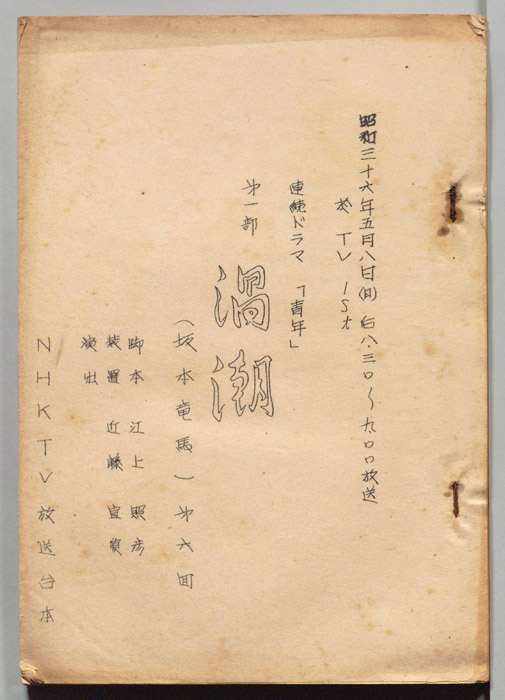 昭和三十六年五月八日(日) 后八.三〇〜九.〇〇放送
於 TV 1St
連続ドラマ「青年」
第一部
渦潮
(坂本竜馬) 第六回
脚本 江上照彦
装置 近藤宣宣
演出
NHKTV放送台本